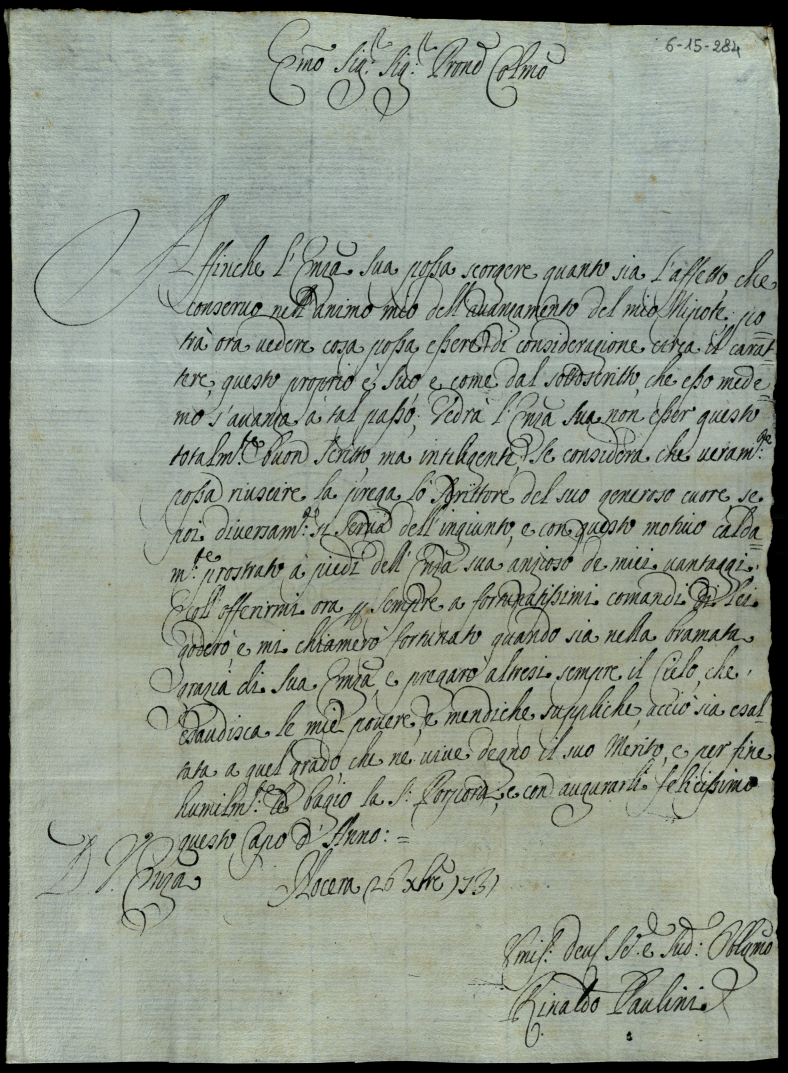 6-15-284
Emo Sig.r Sig.r Prone Colmo
Affinche l'Emza Sua possa scorgere quanto sia l'affetto che
conservo nell'animo mio dell'avanzamento del mio Nipote, po=
trà ora vedere cosa possa essere di considerazione circa il carat=
tere, questo proprio è Suo e come dal sottoscritto, che esso mede=
mo s'avanza à tal passo; Vedrà l'Emza Sua non esser questo
totalm.te buon scritto, ma inteligente, Se considera che veram.te
possa riuscire la prega lo Scrittore del suo generoso cuore, se
poi diversam.te si Servia dell'ingiunto, e con questo motivo calda=
m.te prostrato à piedi dell'Emza sua anzioso de miei vantaggi.
Coll'offerirmi ora e sempre a fortunatissimi comandi di lei
goderò e mi chiamerò fortunato quando sia nella bramata
grazia di Sua Emza, e pregarò altresi sempre il Cielo, che
esaudisca le mie povere, e mendiche suppliche, acciò sia esal=
tata a quel grado che ne vive degno il suo Merito, e per fine
humilm.te le bagio la S. Porpora, e con augurarli felicissimo
questo Capo d'Anno: =
D V. Emza Nocera 26 Xbre 1731
Umis. deus Se.e Sud: Oblgmo
Rinaldo Paulini